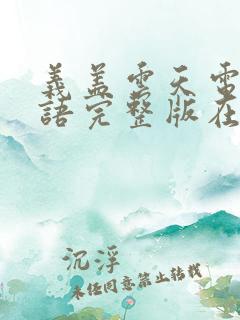 義蓋雲天電
語完整版在
沉浮
未经同意禁止转载